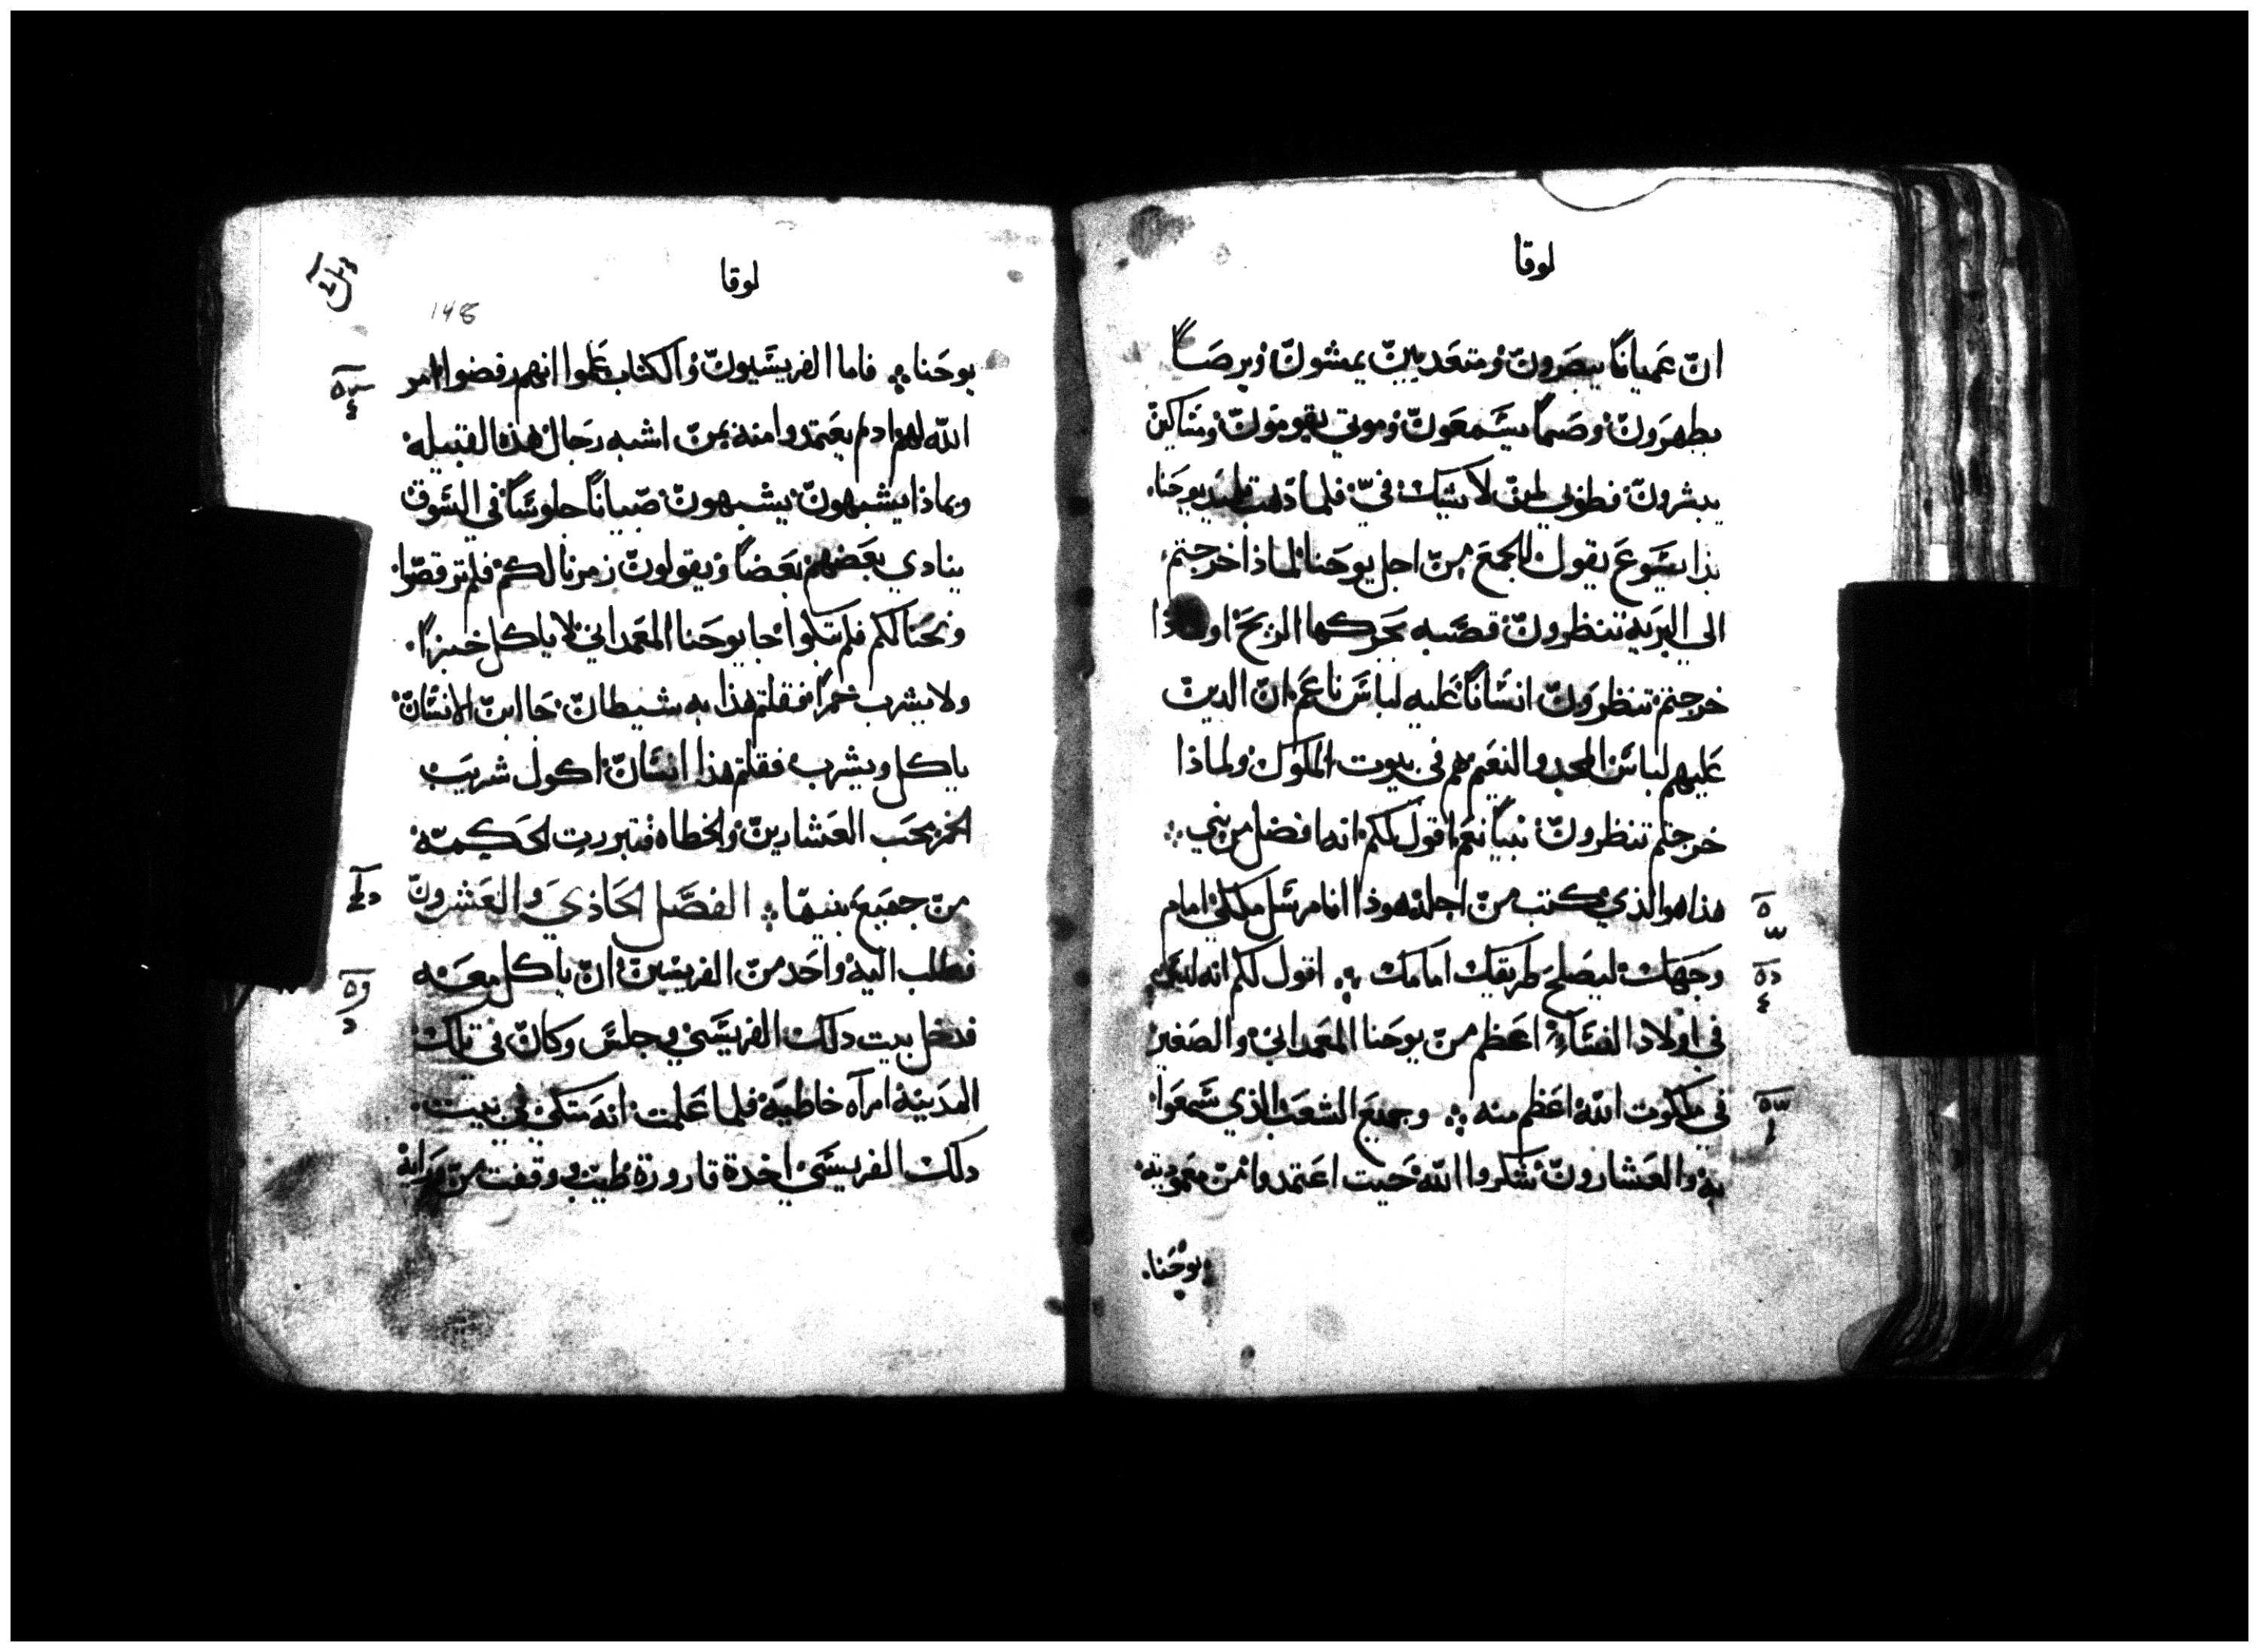 لوقا
ان عميانا يبصرون ومتعدين يمشون وبرصا
يطهرون وصما يسمعون وموتى يقومون ومساكين
يبشرون فطوبى لمن لا يشك في فلما تلميذي يوحنا
بدا يسوع يقول للجمع من اجل يوحنا لماذا خرجتم
الى البريه تنظرون قصبه تحركها الريح او
خرجتم تنظرون انسانا عليه لباس ناعم ان الدين
عليهم لباس المجد والنعيم هم في بيوت الملوك ولماذا
خرجتم تنظرون نبيا نعم اقول لكم انه افضل من نبي
هذا هو الذي كتب من اجله هوذا انا مرسل ملاكي امام
وجهك ليصلح طريقك امامك اقول لكم انه ليس
في اولاد النساء اعظم من يوحنا المعمداني والصغير
في ملكوت الله اعظم منه وجميع الشعب الذي سمعوا
به والعشارون شكروا الله حيت اعتمدوا من معموديه
يوحنا
لوقا
148
يوحنا فاما الفريسيون والكتاب علموا انهم رفضوا امر
الله لهم اد لم يعتمدوا منه بمن اشبه رجال هذه القبيله
وبماذا يشبهون يشبهون صبيانا جلوسا في السوق
ينادي بعضهم بعضا ويقولون زمرنا لكم فلم ترقصوا
ونحنا لكم فلم تبكوا جا يوحنا المعمداني لا ياكل خبزا
ولا يشرب خمرا فقلتم هذا به شيطان جا ابن الانسان
ياكل ويشرب فقلتم هذا انسان اكول شريب
الخمر يحب العشارين والخطاه فتبررت الحكمه
من جميع بنيها الفصل الحادي والعشرون
فطلب اليه واحد من الفريسين ان ياكل معه
فدخل بيت دلك الفريسي وجلس وكان في تلك
المدينه امرآه خاطيه فلما علمت انه متكي في بيت
دلك الفريسي اخدة قارورة طيب ووقفت من ورايه